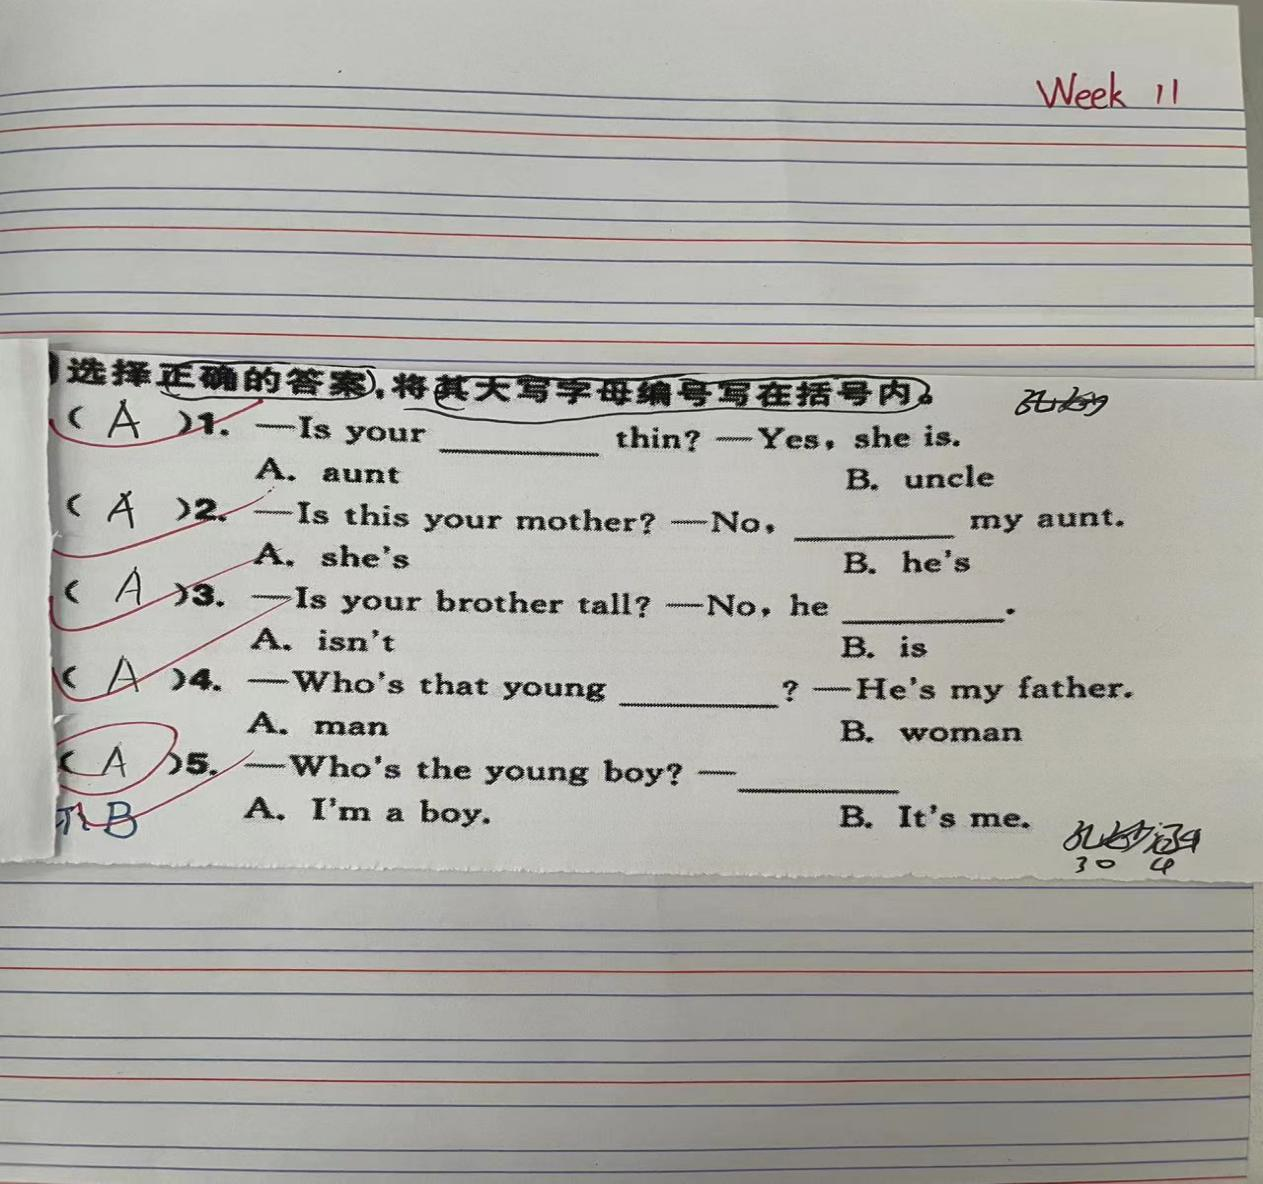 Week 11
选择正确的答案,将其大写字母编号写在括号内。
( A )1. —Is your ________ thin? —Yes, she is.
A. aunt B. uncle
( A )2. —Is this your mother? —No, ________ my aunt.
A. she's B. he's
( A )3. —Is your brother tall? —No, he ________.
A. isn't B. is
( A )4. —Who's that young ________? —He's my father.
A. man B. woman
( A )5. —Who's the young boy? —________
B A. I'm a boy. B. It's me.
30 4